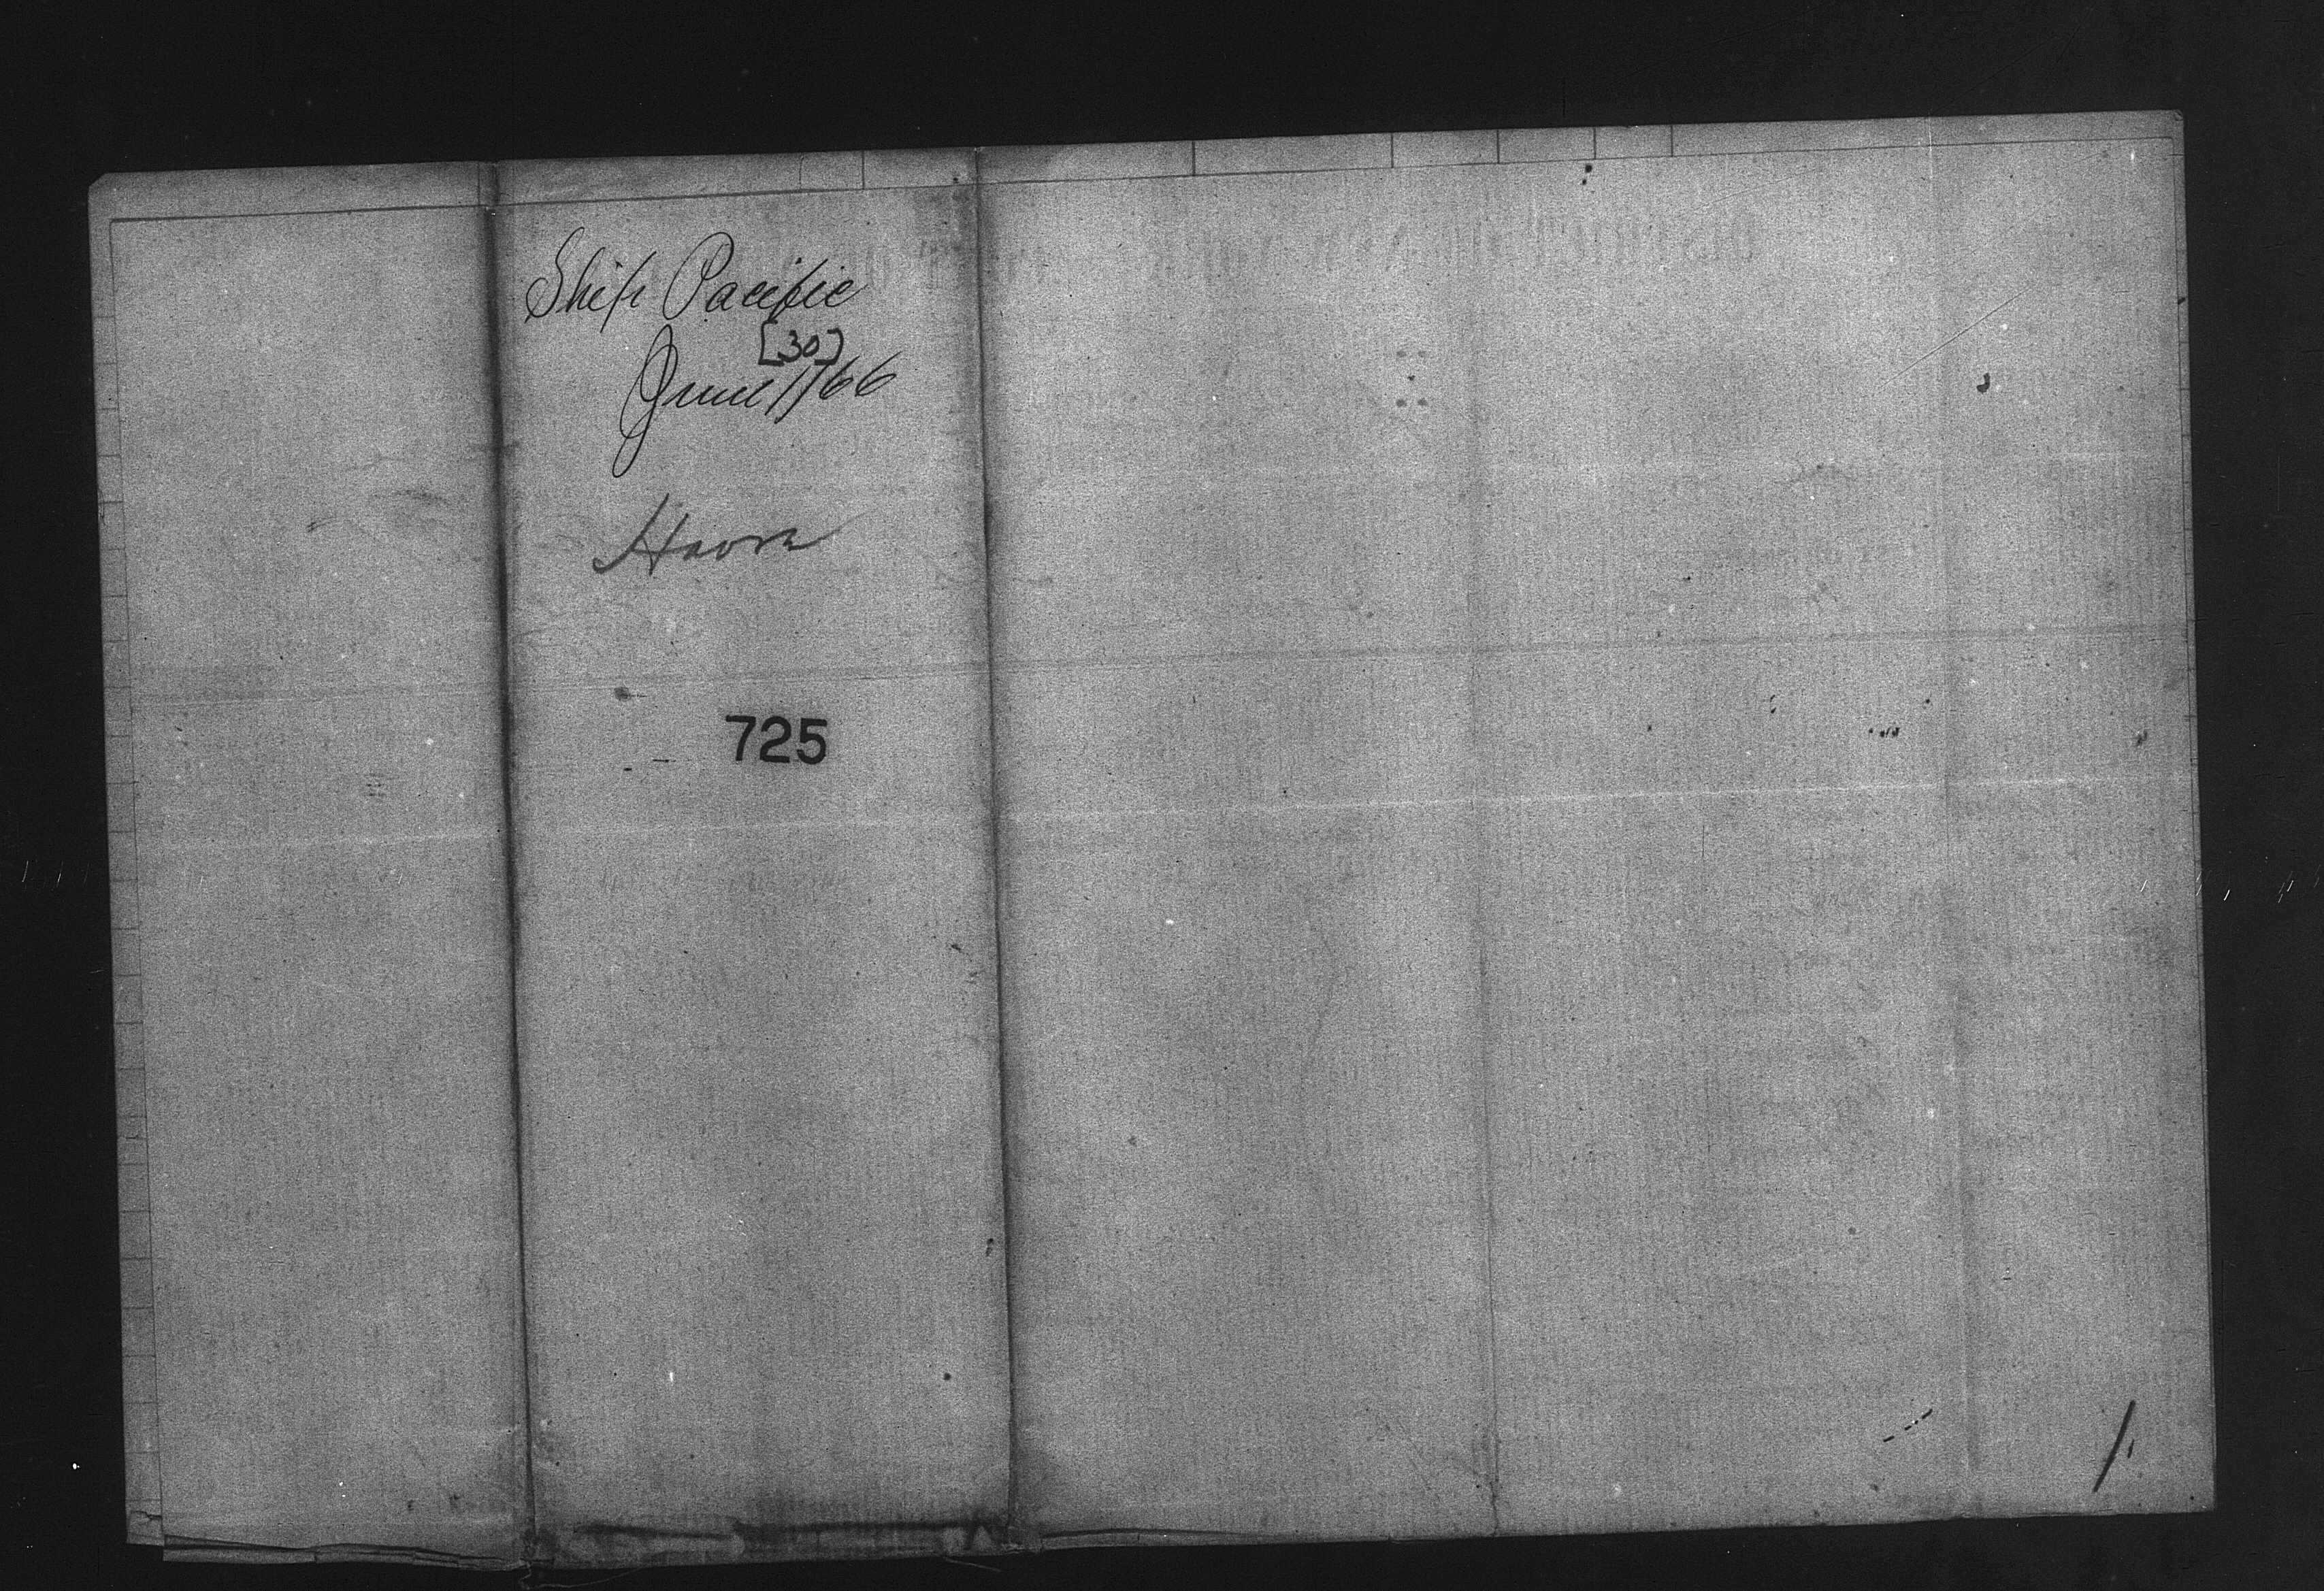 Ship Pacific
[30]
June 1/66
Havre
725